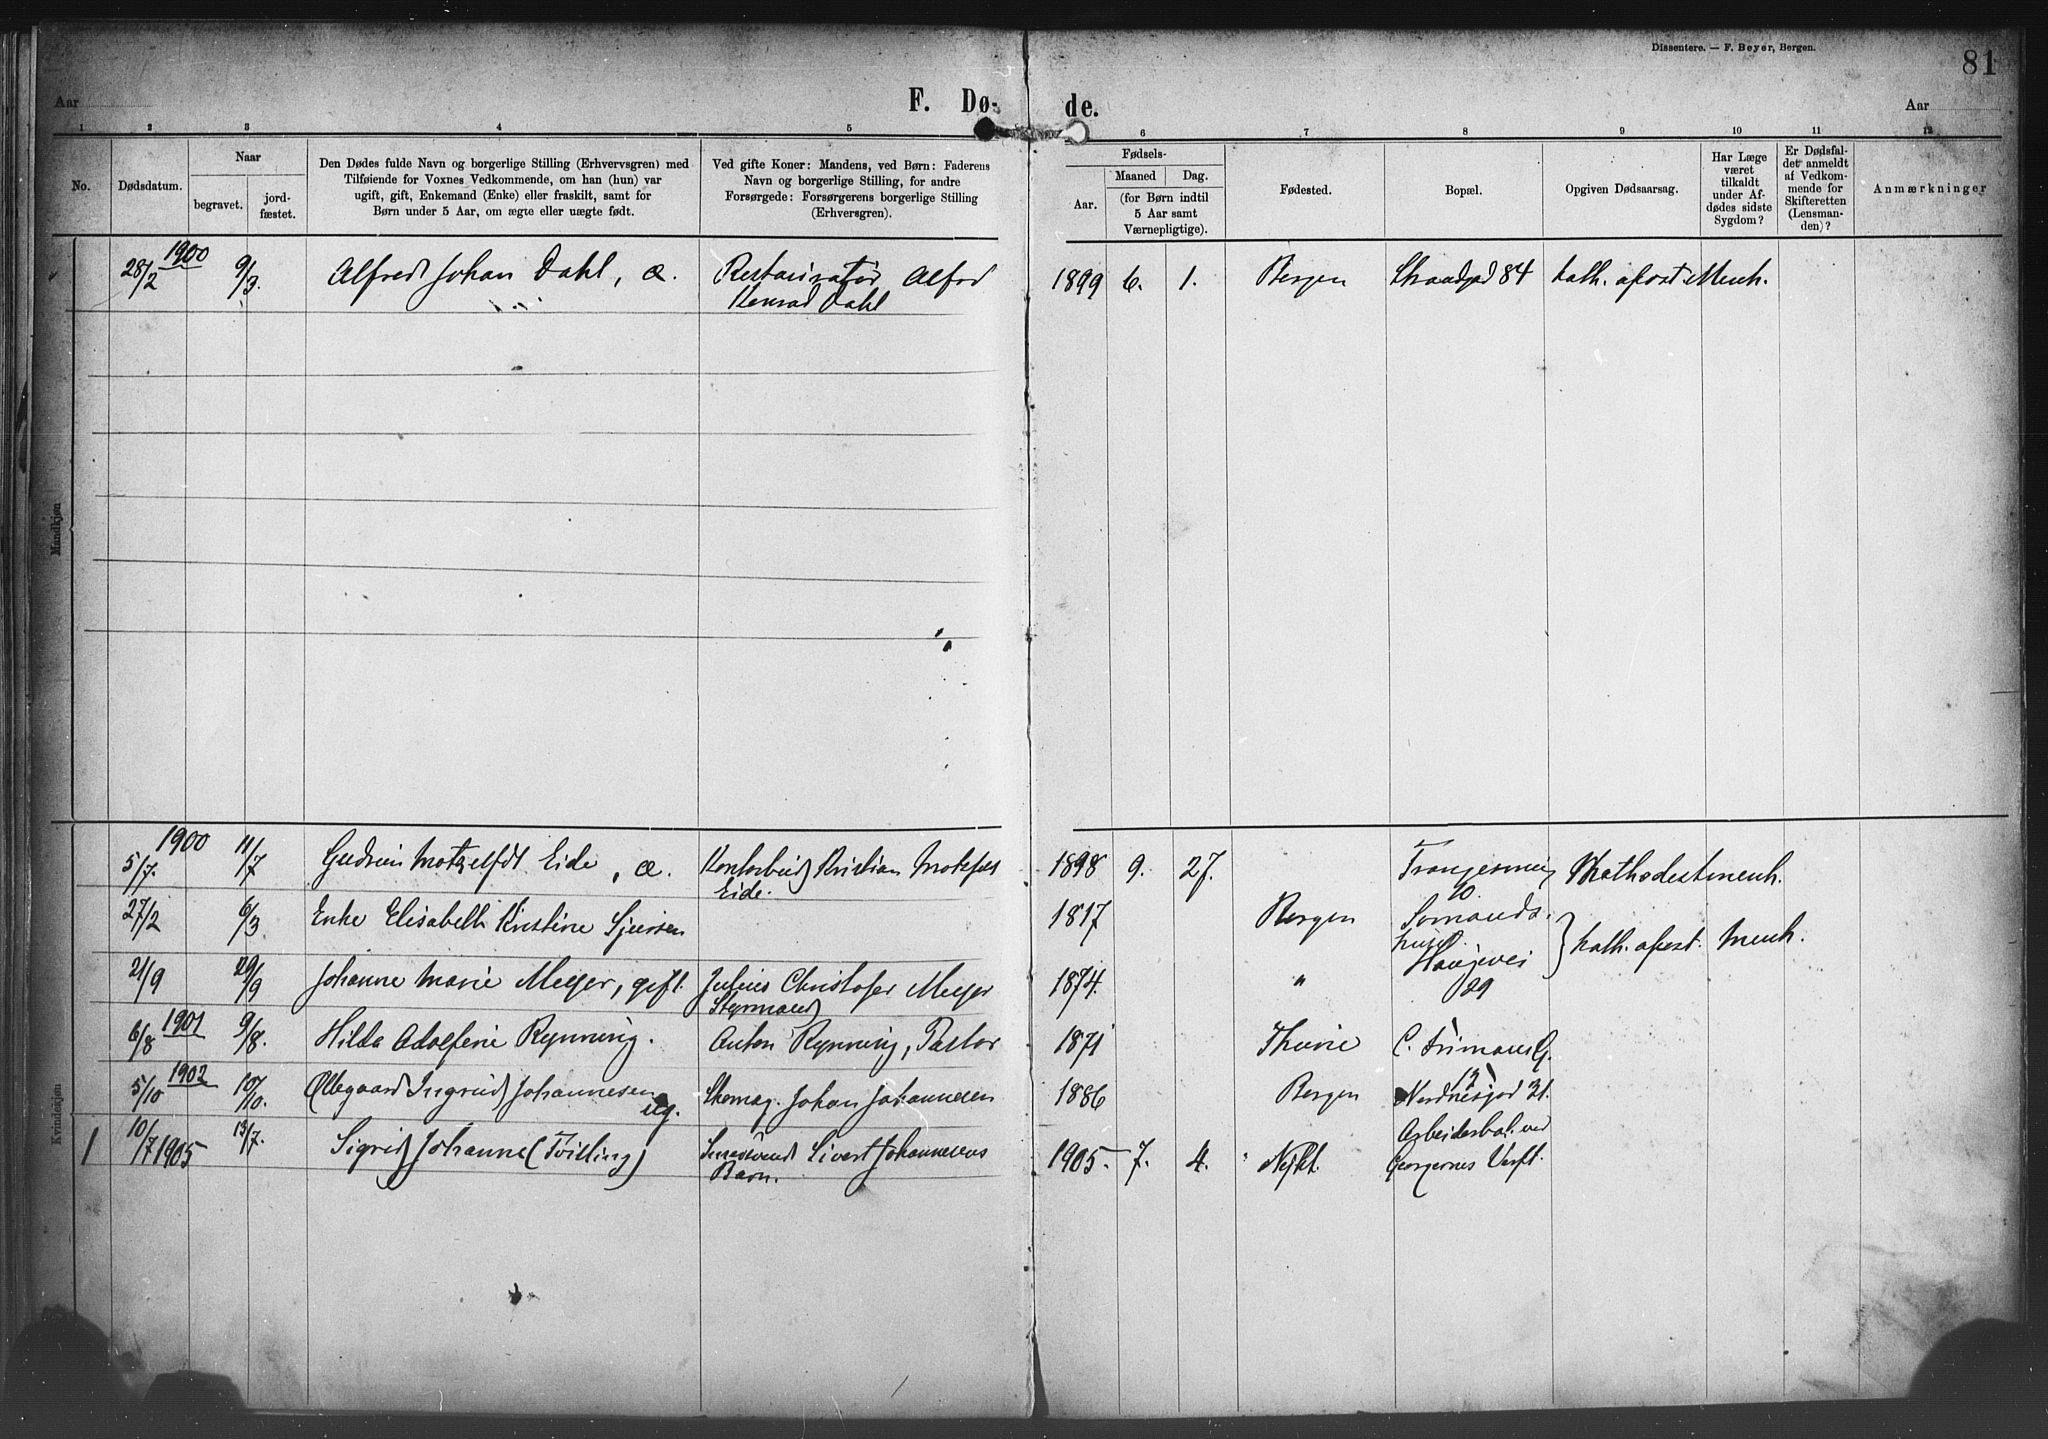 Dissentere. — F. Beyer, Bergen.
81
Aar
F. Dø- de.
Aar
1 2 3 4 5 6 7 8 9 10 11 12
No.
Dødsdatum.
Naar
begravet.
jord-
fæstet.
Den Dødes fulde Navn og borgerlige Stilling (Erhvervsgren) med
Tilføiende for Voxnes Vedkommende, om han (hun) var
ugift, gift, Enkemand (Enke) eller fraskilt, samt for
Børn under 5 Aar, om ægte eller uægte født.
Ved gifte Koner: Mandens, ved Børn: Faderens
Navn og borgerlige Stilling, for andre
Forsørgede: Forsørgerens borgerlige Stilling
(Erhversgren).
Fødsels-
Aar.
Maaned
Dag.
(for Børn indtil
5 Aar samt
Værnepligtige).
Fødested.
Bopæl.
Opgiven Dødsaarsag.
Har Læge
været
tilkaldt
under Af-
dødes sidste
Sygdom?
Er Dødsfal-
det anmeldt
af Vedkom-
mende for
Skifteretten
(Lensman-
den)?
Anmærkninger
Mandkjøn
1900
28/2 9/3. Alfred Johan Dahl, æ. Restauratør Alfred 1899 6. 1. Bergen Strandgd 84 kath. apost. Menh.
Konrad Dahl
Kvindekjøn
1900
5/7. 11/7 Gudrun Motzfeldt Eide, æ. Kontorbud Kristian Motzfeldt 1898 9. 27. Methodestmenh.
Eide. 10
27/2 6/3 Enke Elisabeth Kirstine Sjursen 1817 Bergen Sømands. kath. apost. Menh.
21/9 29/9 Johanne Marie Meyer, gift. Julius Christofer Meyer 1874. " Haugevei
Styrmand 29
1901
6/8 9/8. Hilda Adolfine Rynning. Anton Rynning, Pastor 1871 C.
1902 13
5/10 10/10. Ollegaard Ingrid Johannesen Skomag. Johan Johannesen 1886 Bergen Nordnesgd 31.
ug.
Arbeiderbol. ved
1 10/7 1905 13/7. Sigrid Johanne (Tvilling) Smedsvend Sivert Johannesens 1905. 7. 4. Georgernes Verft.
Barn.